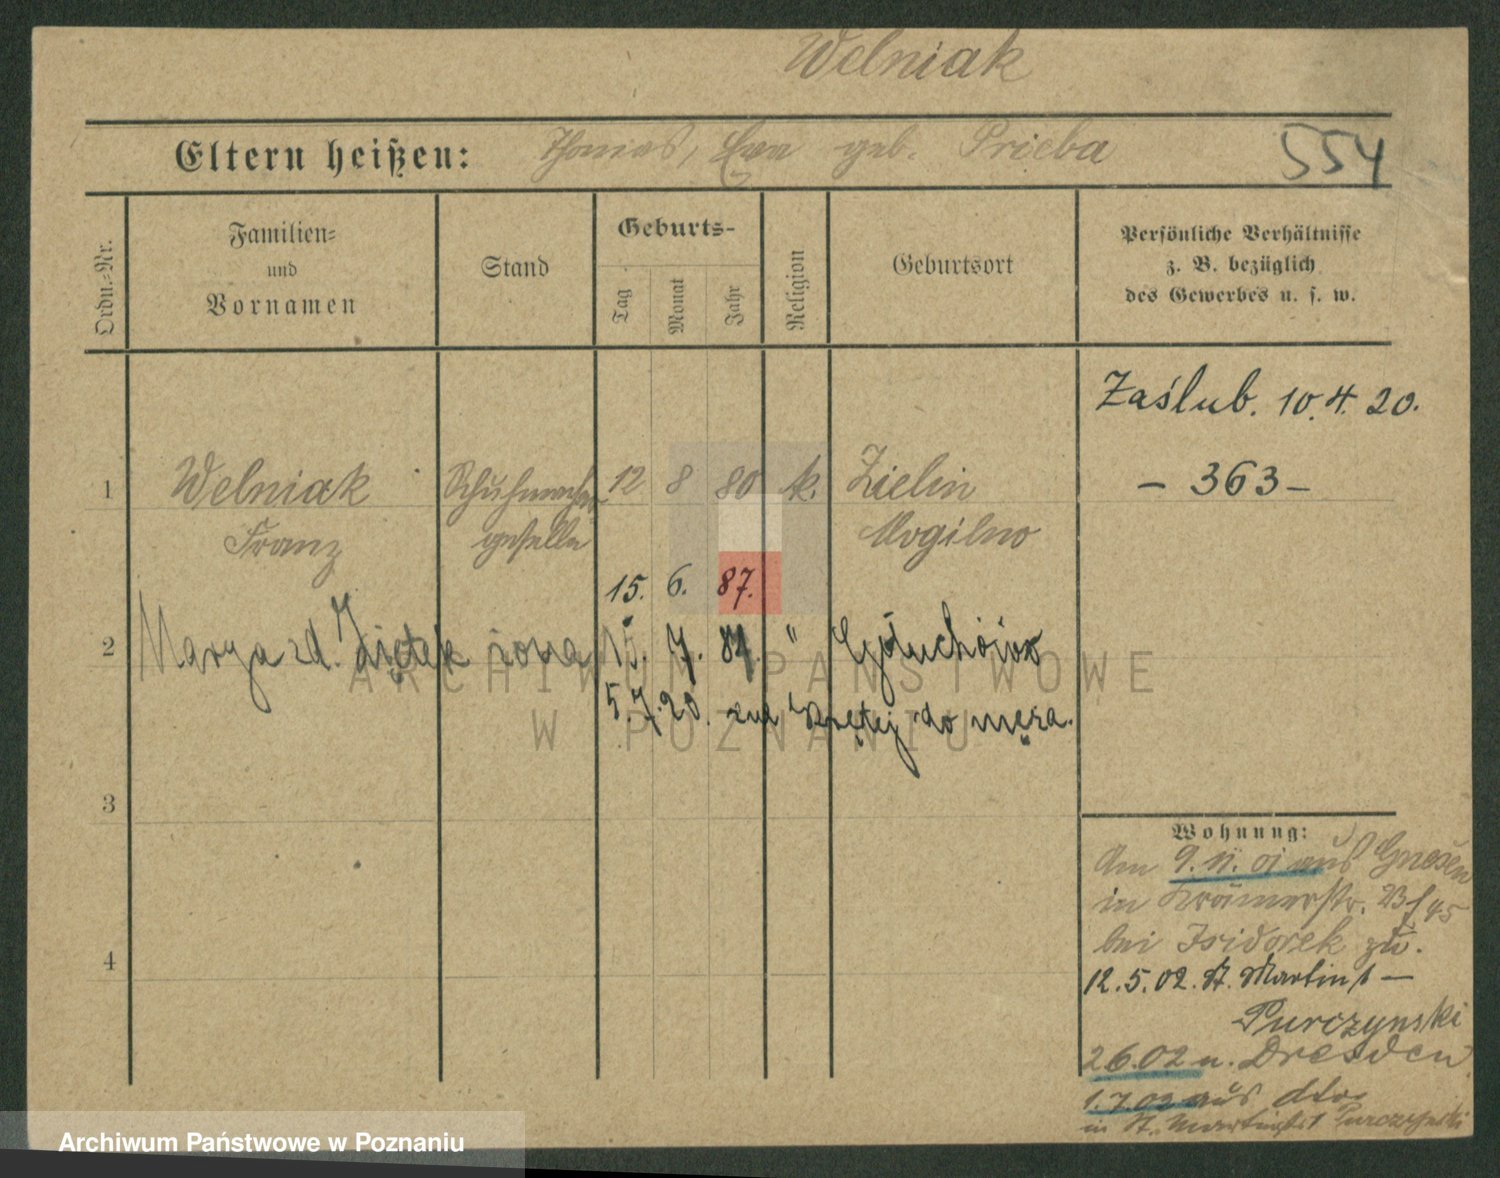 Welniak
Eltern heißen: Thomas, Ewa geb. Prieba
554
Ordn.-Nr.
Familien-
und
Vornamen
Stand
Geburts-
Tag
Monat
Jahr
Religion
Geburtsort
Persönliche Verhältnisse
z. B. bezüglich
des Gewerbes u. s. w.
Zaślub. 10.4.20.
1 Welniak Schuhmacher 12 8 80 k. Zielin
- 363 -
Franz geselle Mogilno
15. 6. 87.
2 Marya zd. Ziętek żona 15. 7. 87. " Głuchówo
5.7.20. do męża.
ARCHIWUM PAŃSTWOWE
W POZNANIU
3
4
Wohnung:
Am 9.11.01 aus Gnesen
in Krämerstr.
bei Isidorek zu.
12.5.02. St. Martin 1 -
Purczynski
2.6.02 n. Dresden
1.7.02 aus dto
in St. Martinstr 1 Purczynski
Archiwum Państwowe w Poznaniu